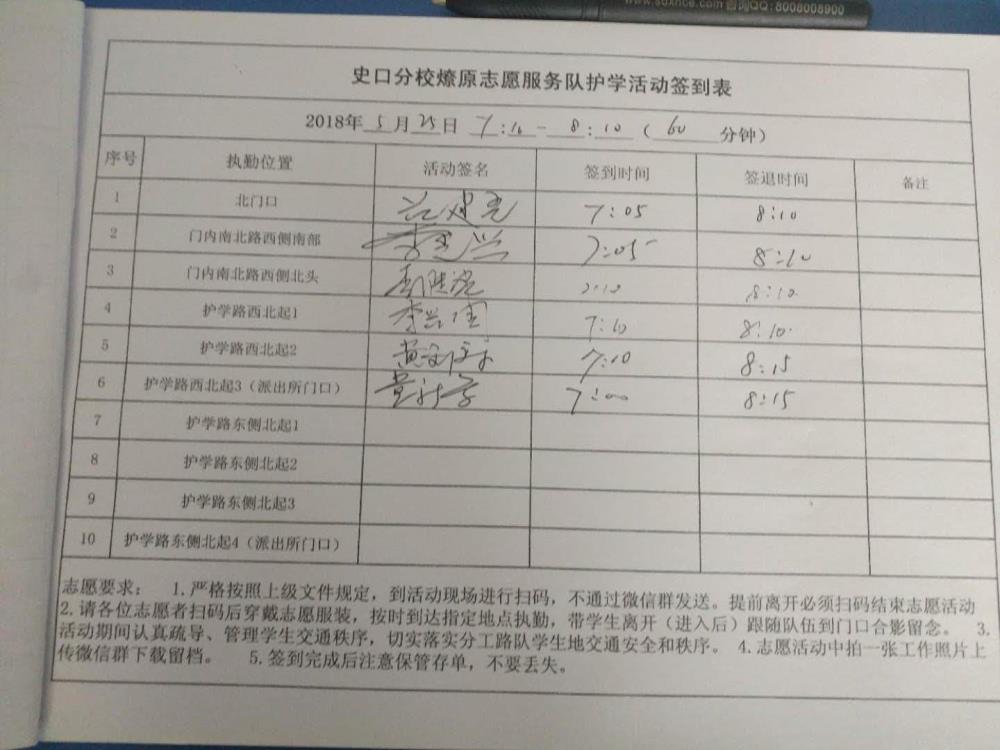 咨询QQ:8008008900
史口分校燎原志愿服务队护学活动签到表
2018年 5 月 25 日 7:10 - 8:10 ( 60 分钟)
序号 执勤位置 活动签名 签到时间 签退时间 备注
1 北门口 7:05 8:10
2 门内南北路西侧南部 7:05 8:10
3 门内南北路西侧北头 8:10
4 护学路西北起1 7:10 8:10
5 护学路西北起2 7:10 8:15
6 护学路西北起3(派出所门口) 7:00 8:15
7 护学路东侧北起1
8 护学路东侧北起2
9 护学路东侧北起3
10 护学路东侧北起4(派出所门口)
志愿要求: 1.严格按照上级文件规定,到活动现场进行扫码,不通过微信群发送。提前离开必须扫码结束志愿活动
2.请各位志愿者扫码后穿戴志愿服装,按时到达指定地点执勤,带学生离开(进入后)跟随队伍到门口合影留念。 3.
活动期间认真疏导、管理学生交通秩序,切实落实分工路队学生地交通安全和秩序。 4.志愿活动中拍一张工作照片上
传微信群下载留档。 5.签到完成后注意保管存单,不要丢失。